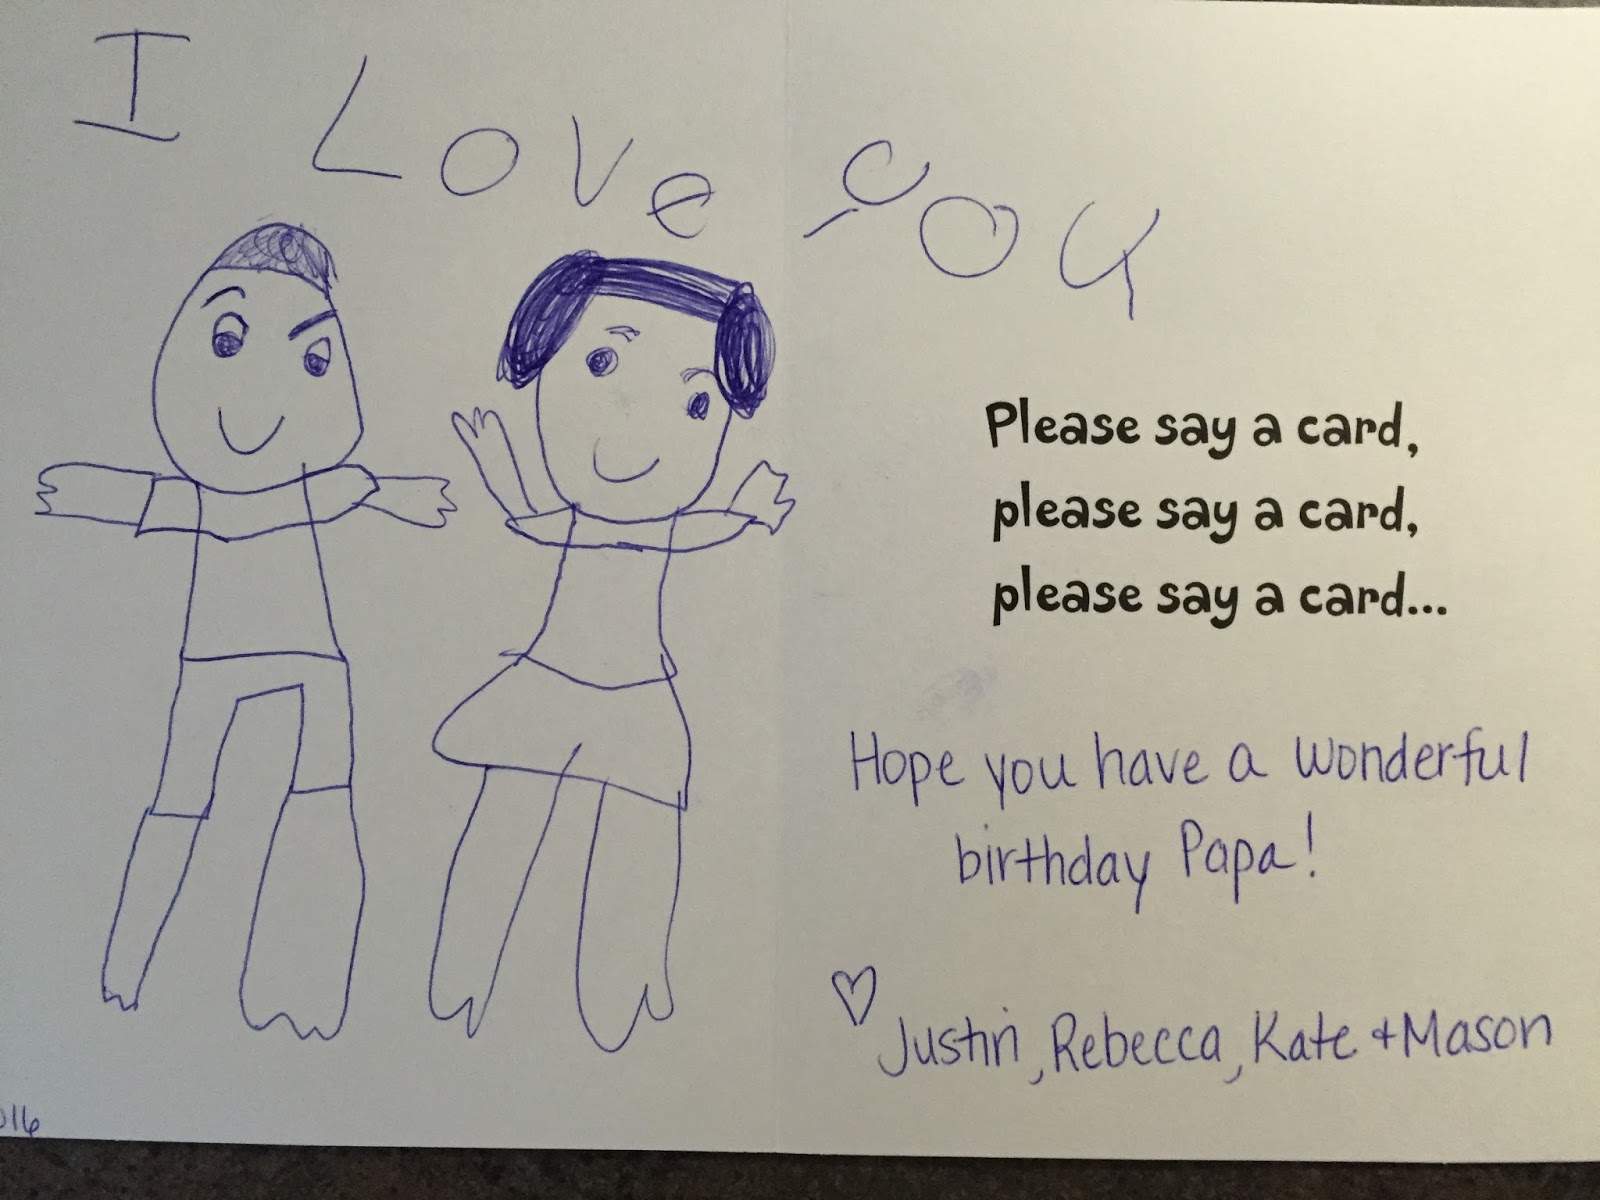 I Love you
Please say a card,
please say a card,
please say a card...
Hope you have a wonderful
birthday Papa!
Justin, Rebecca, Kate + Mason
016